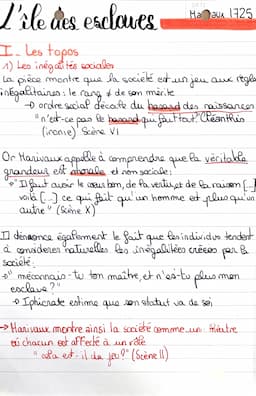 L'île des esclaves Marivaux 1725
I - Les topos
1) Les inégalités sociales
La pièce montre que la société est un jeu aux règles
inégalitaires : le rang ≠ de son mérite
→ ordre social découle du hasard des naissances
"n'est-ce pas le hasard qui fait tout" Cléanthis
(ironie) Scène VI
Or Marivaux appelle à comprendre que la véritable
grandeur est morale et non sociale :
"Il faut avoir le cœur bon, de la vertu, et de la raison [...]
voilà [...] ce qui fait qu'un homme est plus qu'un
autre" (Scène X)
Il dénonce également le fait que les individus tendent
à considérer naturelles les inégalités créées par la
société :
"méconnais-tu ton maître, et n'es-tu plus mon
esclave ?"
→ Iphicrate estime que son statut va de soi
→ Marivaux montre ainsi la société comme un théâtre
où chacun est affecté à un rôle
(Scène II)